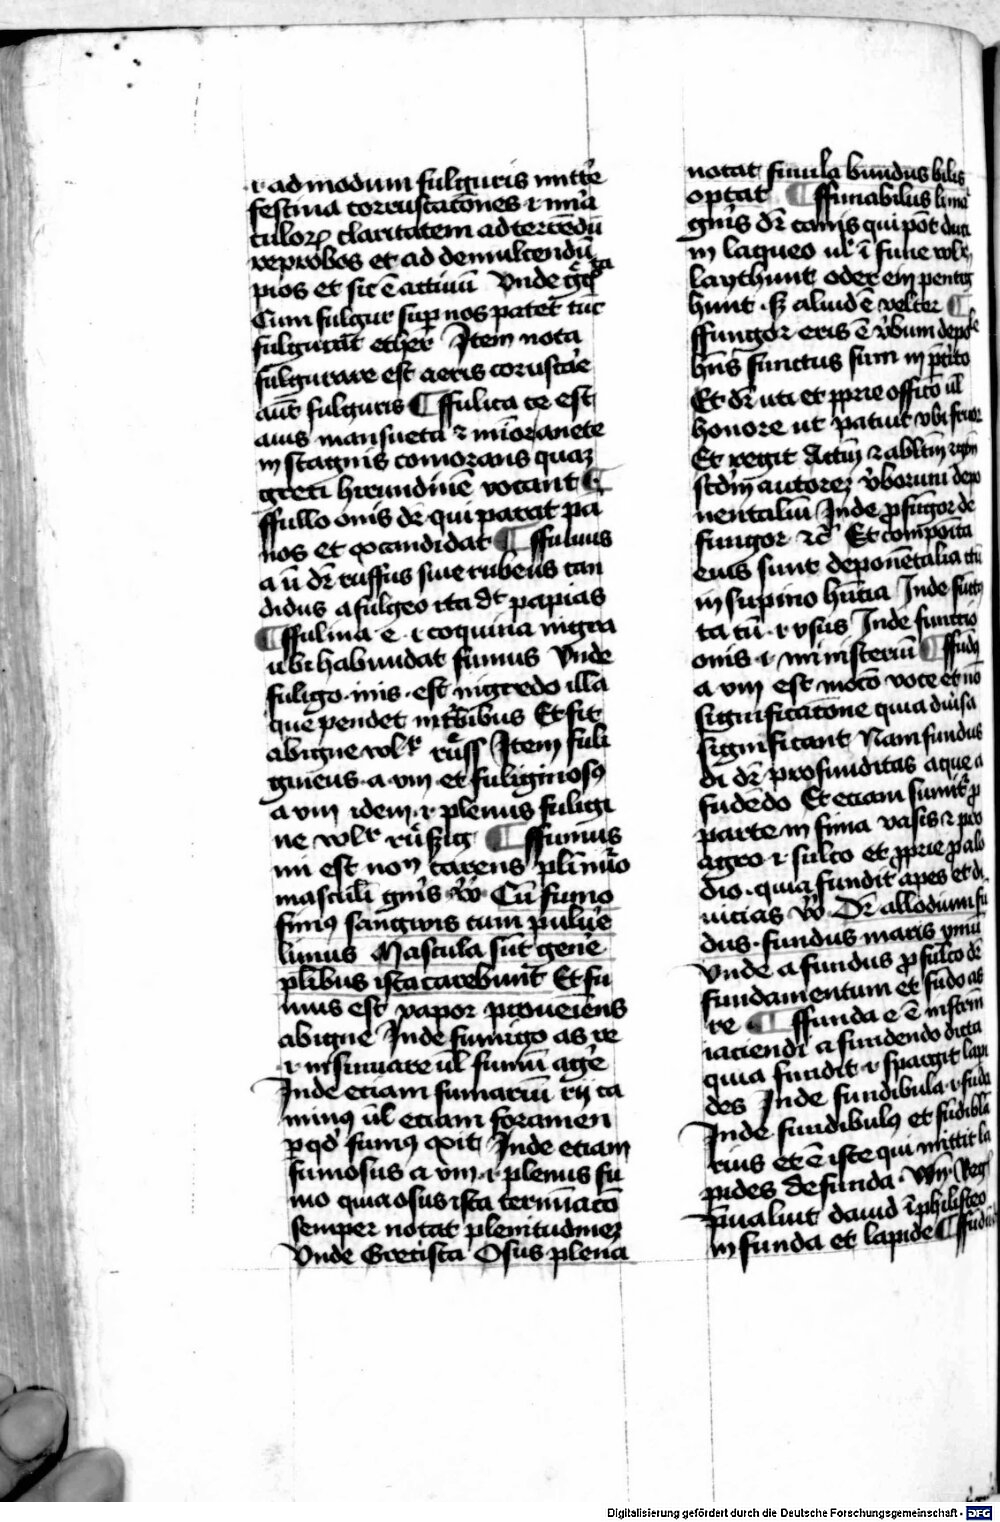 .i. ad modum fulguris mitte̅
festina corruscac̅ones ⁊ mira
culoꝝ claritatem ad terrendu̅
reprobos et ad demulcendu̅
pios et sic e̅ actiuu̅ Vnde gͣ
Cum fulgur sup̲ nos patet tu̅c
fulgurat ether Jtem nota
fulgurare est aeris coruscac̅e
aut̅ fulguris ¶ ffulica ce est
auis mansueta ⁊ mi̅or anete
in stagnis com̅orans quaꝫ
greci hirundine̅ vocant ¶
ffullo onis dr̅ qui parat pa
nos et excandidat ¶ ffuluus
a u̅ dr̅ ruffus siue rubeus can
didus a fulgeo ita dt̅ papias
¶ ffulina e .i. coquina nigra
ubi habundat fumus Vnde
fuligo .inis. est nigredo illa
que pendet in tr̅bibus Et fit
ab igne wlr̅ rüss Jtem fuli
gineus .a. vm et fuliginosꝰ
a vm idem .i. plenus fuligi
ne wlr̅ rüsszig ¶ ffumus
mi est non carens pl̅i nu̅o
masculi̅ gn̅is Vn̅ Cu̅ fumo
fimꝰ sangwis cum puluе̅
limus Mascula su̅t gene̅
pl̅ibus ista carebunt Et fu
mus est vapor proueie̅ns
ab igne Jnde fumigo as re
.i. insinuare ul̅ fumu̅ age̅
Jnde eciam fumariu̅ rij ca
minꝰ ul̅ eciam foramen
p̲ qd̅ fumꝰ exit Jnde eciam
fumosus a vm .i. plenus fu
mo quia osus ista terminaco̅
semper notat plenitudineꝫ
Vnde Grecista Osus plena
notat simila bundus bilis
optat ¶ ffunabilus
gn̅is dr̅ canis qui po̅t duci
in laqueo ul̅ i̅ fune wlr̅
laythunt oder ein
hunt .sꝫ aliud e̅ velter ¶
ffungor eris e̅ v̅bum depo
ne̅s functus sum in p̅t̅ito
Et dr̅ uti et p̲prie offico̅ ul̅
honore ut patuit ubi
Et regit Actm̅ ⁊ abltm̅
scdm̅ autoreꝫ v̅borum depo
nentaliu̅ Jnde p̲fungor de
fungor ⁊c̅ Et composita
eius sunt depone̅talia
in supino hn̅cia Jnde
ta tu̅ .i. vsus Jnde functio
onis .i. ministeriu̅ ¶ ffudꝰ
a vm est moco̅ voce et no̅
significatione quia diu̅sa
significant Nam fundus
di dr̅ profunditas aque a
fude̅do Et eciam sumit̅ p̲
parte in fima vasis ⁊ pro
agro .i. sulco et p̲prie p̲
dio. quia fundit apes et di
uicias Vn̅ Dr̅ allodium fu̅
dus .fundus maris
Vnde a fundus p̲ sulco dr̅
fundamentum et fu̅do as
re ¶ ffunda e e̅ instrm̅
iaciendi a fundendo dicta
quia fundit .i. spargit lapi
des Jnde fundibula .i. funda
Jnde fundibulꝰ et fu̅dibla
rius et e̅ iste qui mittit la
pides de funda . Vn̅ Reg̅
p̲ualuit dauid i̅ philisteo
in funda et lapide ¶
Digitalisierung gefördert durch die Deutsche Forschungsgemeinschaft - DFG